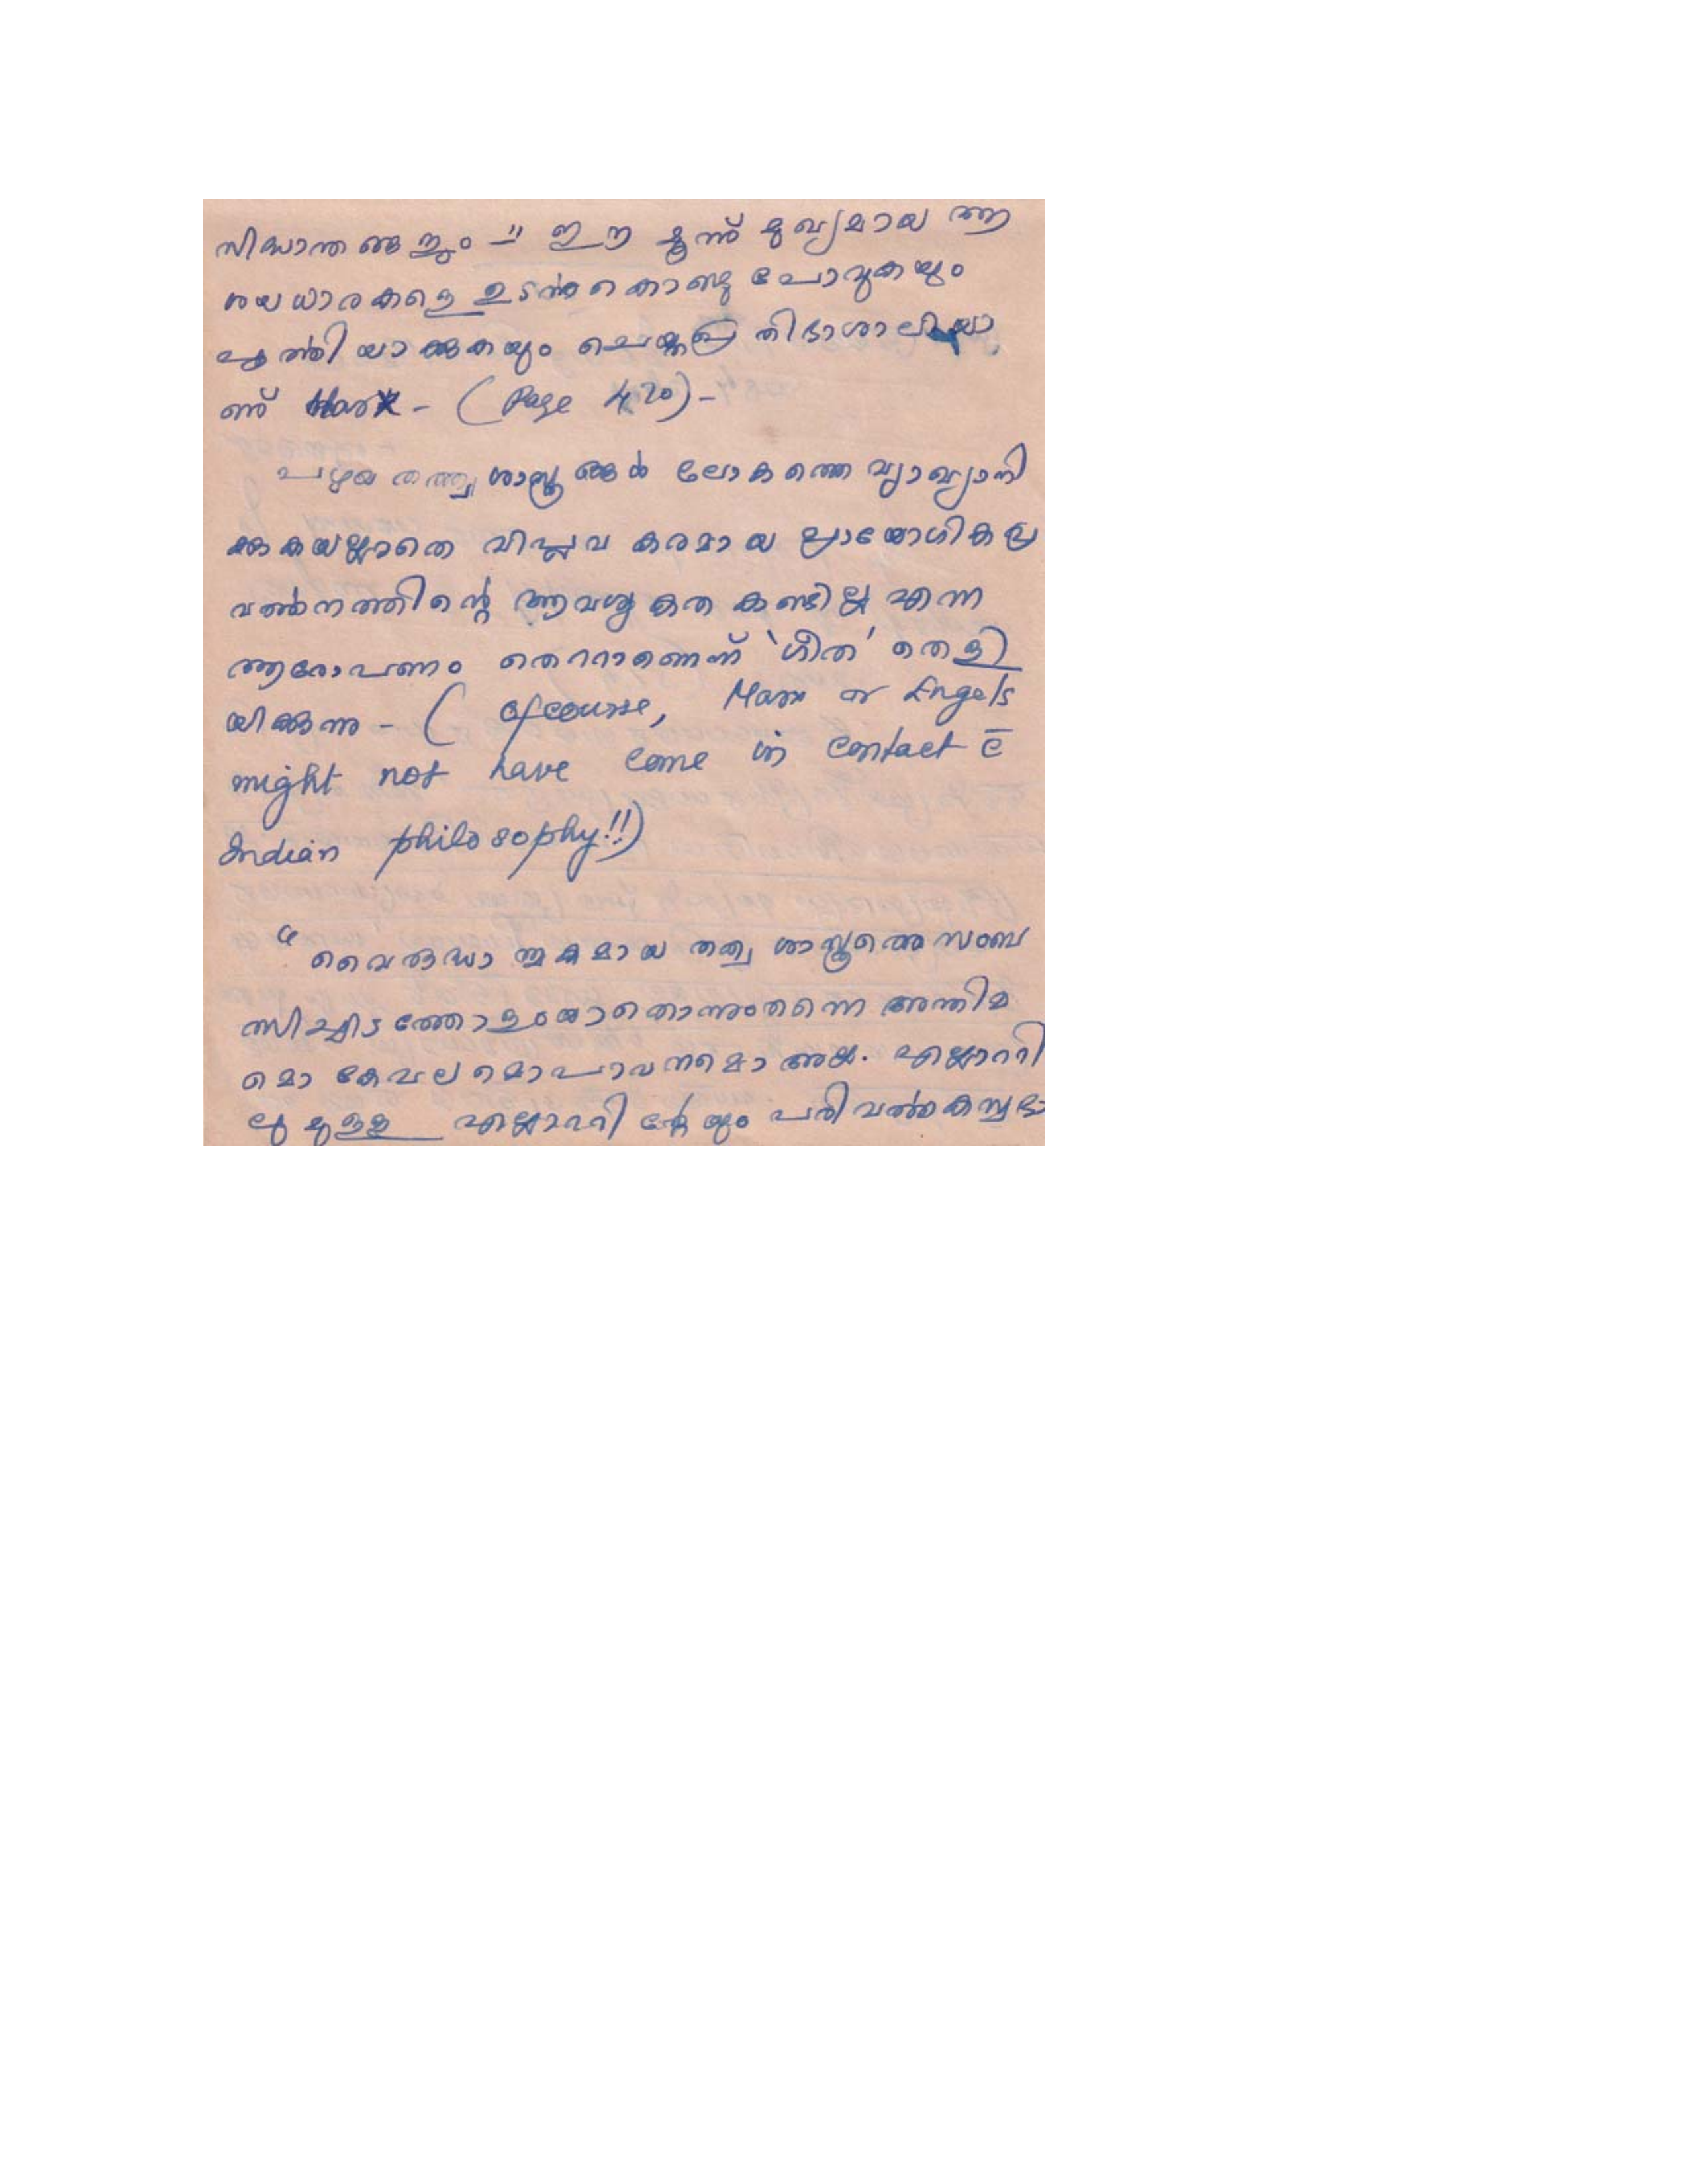 സിദ്ധാന്തങ്ങളും –" ഈ മൂന്ന് മുഖ്യമായ ആ
ശയധാരകളെ ഉടനീളം കൊണ്ടു പോവുകയും
പൂൎത്തിയാക്കുകയും ചെയ്ത പ്രതിഭാശാലിയാ
ണ് Marx – (Page 420) –
പഴയ തത്ത്വശാസ്ത്രങ്ങൾ ലോകത്തെ വ്യാഖ്യാനി
ക്കുകയല്ലാതെ വിപ്ലവകരമായ പ്രായോഗിക പ്ര
വൎത്തനത്തിന്റെ ആവശ്യകത കണ്ടില്ല എന്ന
ആരോപണം തെററാണെന്ന് 'ഗീത' തെളി
യിക്കുന്നു – ( Ofcourse, Marx or Engels
might not have come in contact c̄
Indian philosophy!!)
"വൈരുദ്ധ്യാത്മകമായ തത്വശാസ്ത്രത്തെ സംബ
ന്ധിച്ചിടത്തോളം യാതൊന്നുംതന്നെ അന്തിമ
മൊ കേവലമൊ പാവനമൊ അല്ല. എല്ലാററി
ലുമുള്ള എല്ലാററിന്റേയും പരിവൎത്തകസ്വഭാ